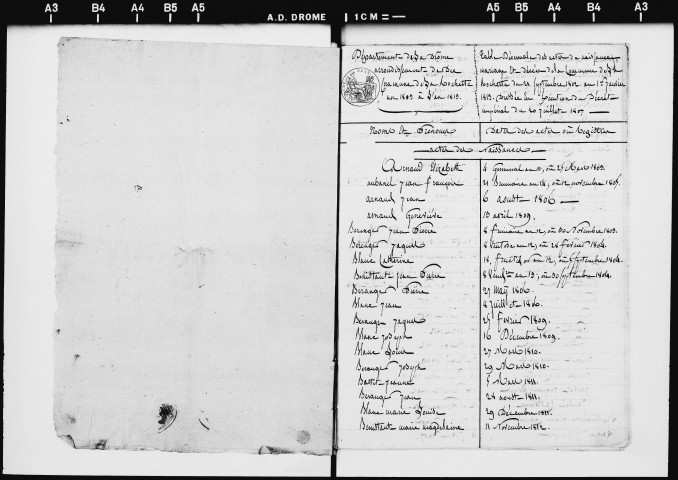 A3 B4 A4 B5 A5 A.D. DROME 1CM= A5 B5 A4 B4 A3
Département de la Drôme
arrondissement de Die
Commune de la Rochette
an 1803 à l'an 1813.
Table Décennale des actes de naissance
mariage et décès de la Commune de la
Rochette du 21 Septembre 1802 au 1er Janvier
1813. dressée en exécution du Décret
impérial du 20 juillet 1807
Noms et Prénoms Date des actes ou Registre
actes de Naissances
Arnaud Elizabeth 4 Germinal an 11, ou 25 Mars 1803.
aubanel Jean françois 21 Brumaire an 14, ou 12 novembre 1805.
arnaud Jean 6 aoust 1806
arnaud Geneviève 13 avril 1809.
Beranger Jean Pierre 8 frimaire an 12, ou 30 Novembre 1803.
Berenger Jaques 8 Ventose an 12, ou 28 février 1804.
Blanc Catherine 18, fructidor an 12, ou 5 Septembre 1804.
Bouittant Jean Pierre 8 Vendre an 13, ou 30 Septembre 1804.
Beranger Pierre 27 May 1806.
Blanc Jean 4 Juillet 1806.
Beranger Jaques 25 février 1809.
Blanc Joseph 16 Décembre 1809.
Blanc Louise 27 Mars 1810.
Beranger Joseph 29 Mars 1810.
Barret Jeanne 5 Mars 1811.
Beranger Jean 28 aoust 1811.
Blanc marie Louise 29 Décembre 1811.
Bouittant marie magdelaine 11 Novembre 1812.